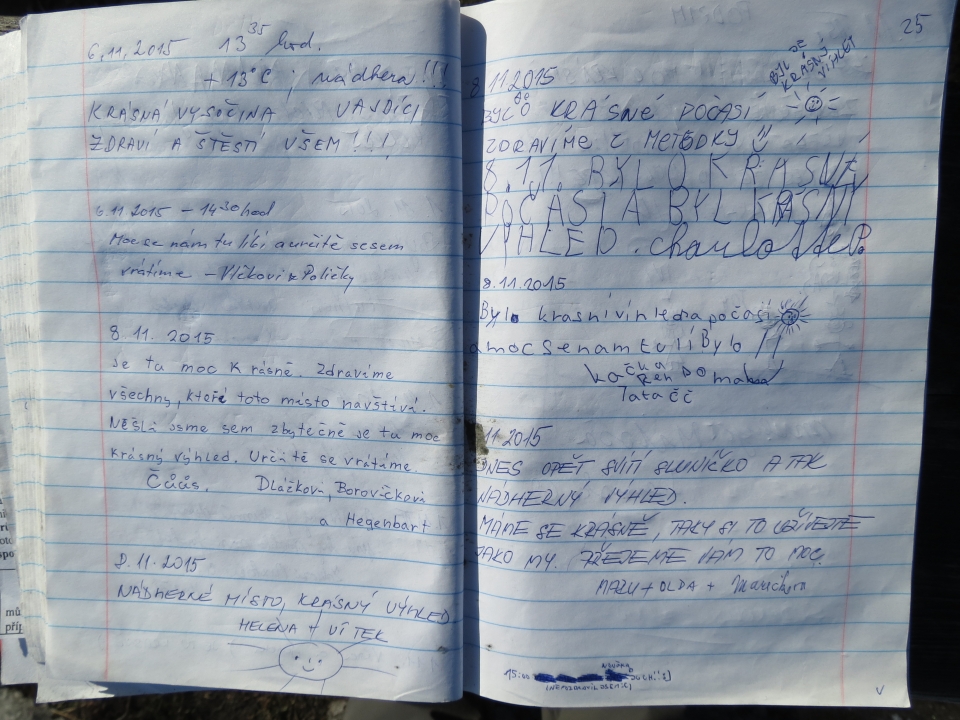 6.11.2015 13³⁵ hod.
+13°C ; nádhera!!!
KRÁSNÁ VYSOČINA VAJDÍCÍ
ZDRAVÍ A ŠTĚSTÍ VŠEM!!!
6.11 2015 - 14³⁰ hod
Moc se nám tu líbí a určitě se sem
vrátíme - Vlčkovi z Poličky
8.11.2015
Je tu moc Krásně. Zdravíme
všechny, kteří toto místo navštíví.
Něšli jsme sem zbytečně je tu moc
krásný výhled. Určitě se vrátíme.
Čůůs. Dláčková, Borováčková
a Hegenbart
8.11.2015
NÁDHERNÉ MÍSTO, KRÁSNÝ VÝHLED
HELENA + VÍTEK
25
BYL DE
KRÁSNÝ
VÍHLET
8.11 2015
BYLO DE KRÁSNÉ POČASÍ
ZDRAVÍME Z METODKY
8.11. BYLO KRÁSNÉ
POČASÍ A BYL KRÁSNÍ
VÝHLED. charlotte P.
8.11.2015
Bylo krasni vihled na počasi
a moc se nam tu libylo !!
kačka
Tatačč
11 2015
DNES OPĚT SVÍTÍ SLUNÍČKO A TAK
NÁDHERNÝ VÝHLED.
MÁME SE KRÁSNĚ, TAKY SI TO UŽÍVEJTE
JAKO MY. PŘEJEME VÁM TO MOC.
+ OLDA +
15:00 NOVÁK